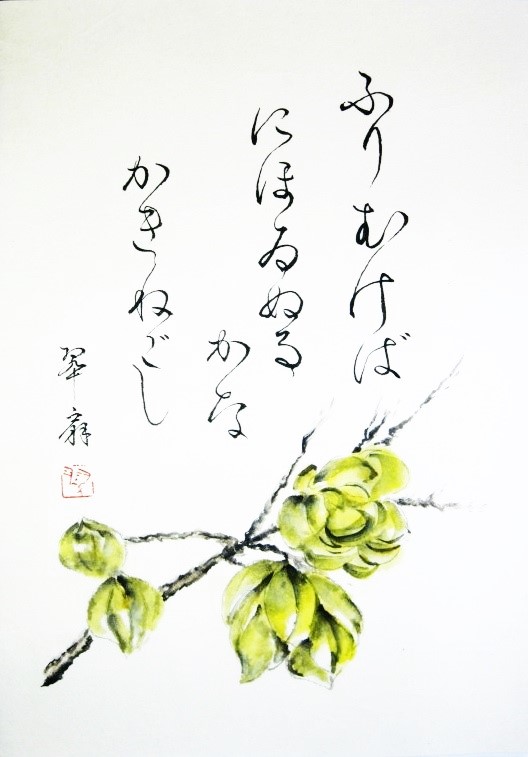 ふりむけば
にほゐぬる
かな
かきねごし